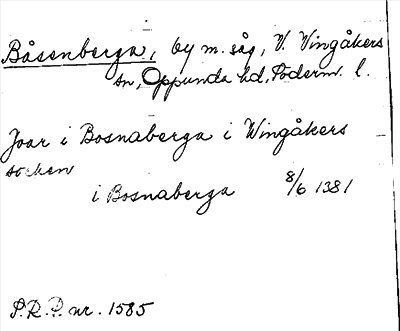 Båsenberga, by m. såg, V. Vingåkers
sn, Oppunda hd, Söderm. l.
Joar i Bosnaberga i Wingåkers
socken
i Bosnaberga 8/6 1381
S.R.P. nr. 1585